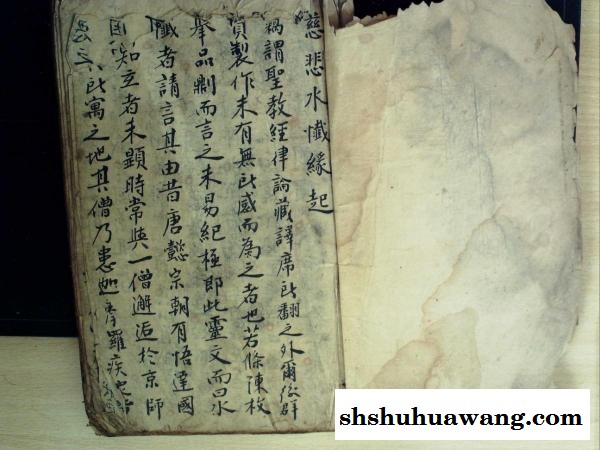 慈悲水懺緣起
謂聖教經律論藏譯席所翻之外爾後群
賢製作未有無所感而為之者也若條陳枚
舉品劚而言之未易紀極即此靈文而曰水
懺者請言其由昔唐懿宗朝有悟達國
知玄者未顯時常與一僧邂逅於京師
所寓之地其僧乃患迦摩羅疾
shshuhuawang.com